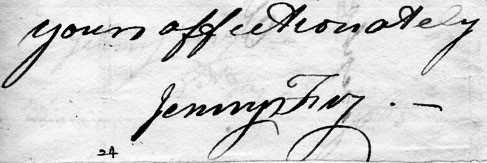 yours affectionately
Jenny Fry. —
24